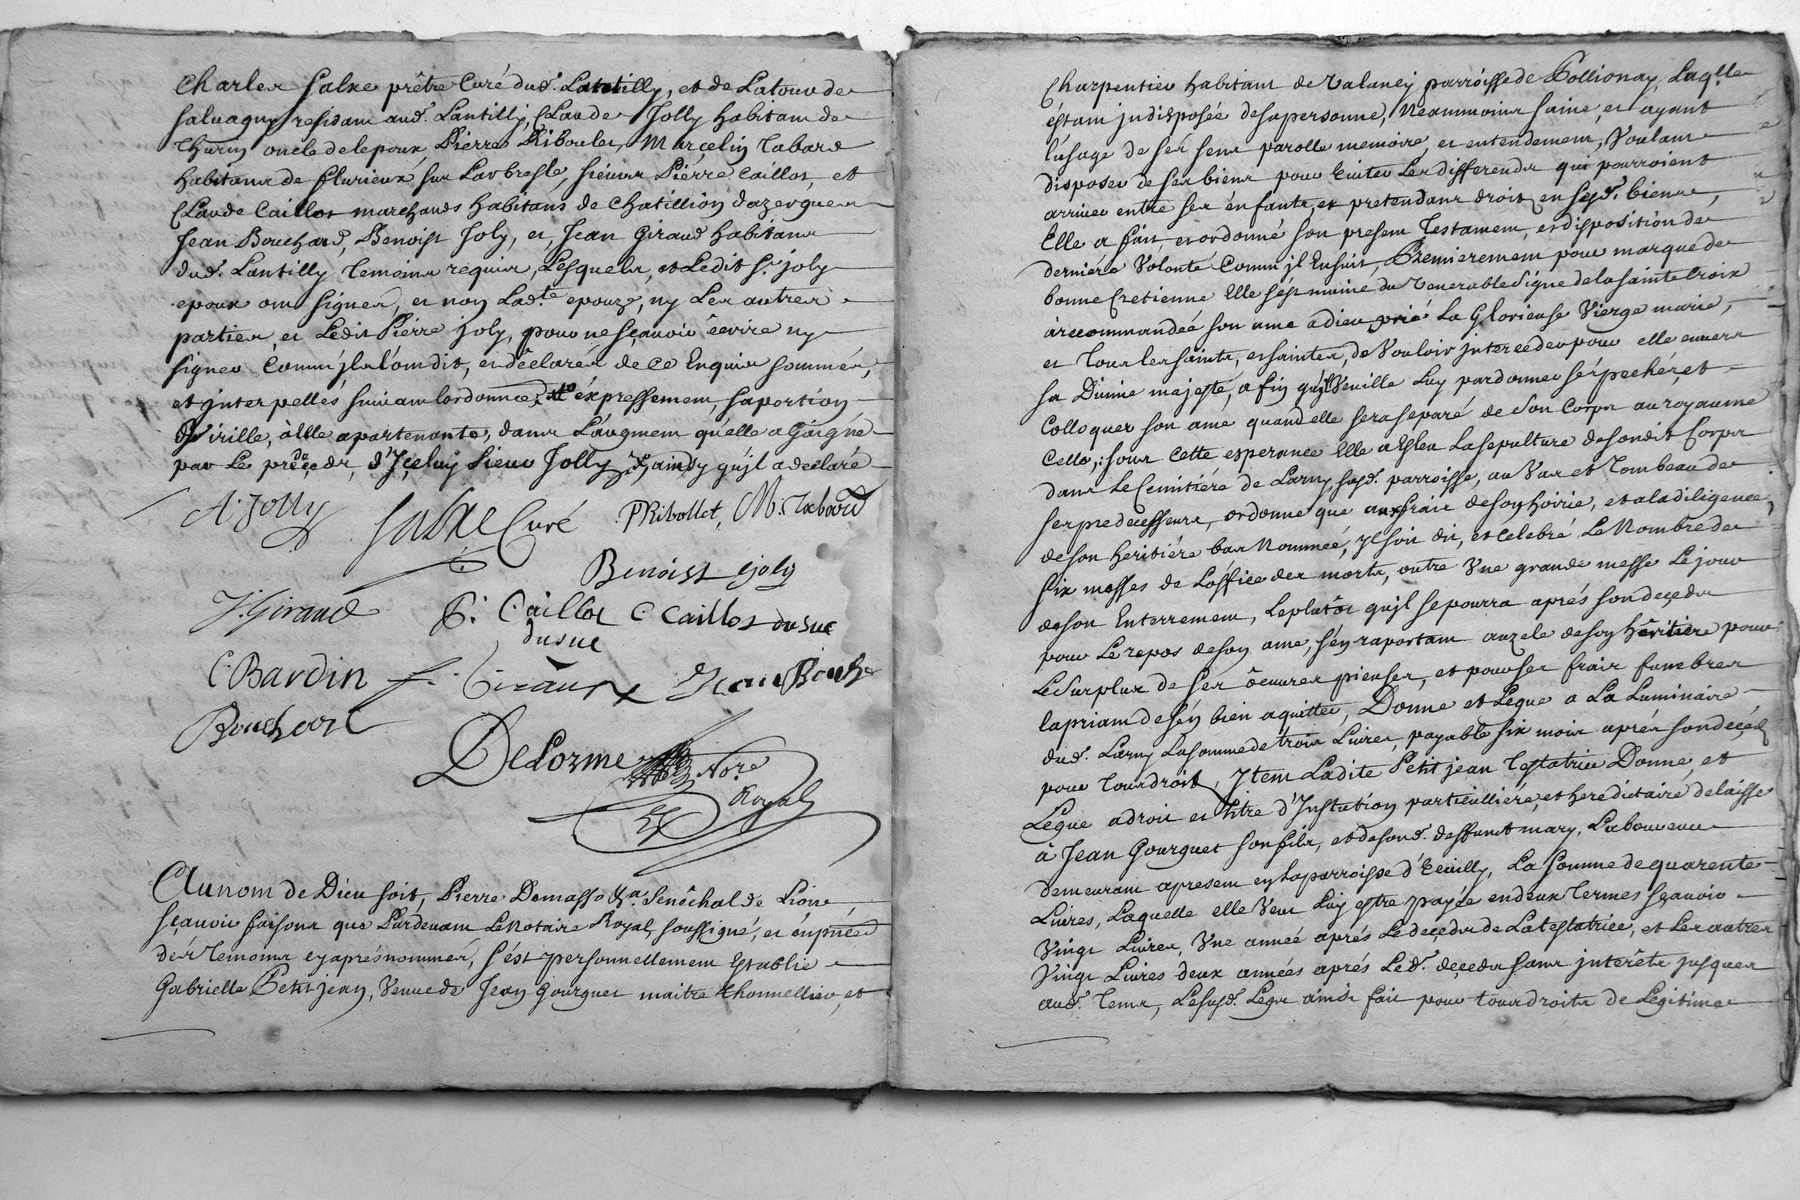 Charles Salxe prêtre Curé dud. Lantilly, et de Latour de
Salvagny residant aud. Lantilly, Claude Jolly habitant de
Thurin oncle de lepoux, Pierre Ribouler, Marcelin Tabard
habitans de fleurieux sur Larbresle, sieurs Pierre Caillot, et
Claude Caillot marchands habitans de Chatillion dazergues
Jean Bouchard, Benoist Joly, et Jean Giraud habitans
dud. Lantilly temoins requis, Lesquels, et Ledit Sr. joly
epoux ont signer, et non Ladte. epouze, ny Les autres
parties, et Ledit Pierre joly, pour ne sçavoir écrire ny
signer Comm'jls l'ont dit, et déclarés de ce Enquis sommés,
et jnterpellés suivant lordonnce. et éxpressement, sa portion
de virille, à Elle apartenante, dans L'augment qu'elle a Gaigné
par Le prédecedz, d'Jceluy Sieur Jolly, Ainsy qu'jl a declaré
A. Jolly Salxe Curé PRibollet, M. Tabard
Benoist joly
J. Giraud P. Caillot C Caillot dusuc
dusuc
C. Bardin Giraux Jean Bouch
Bouchard
Delorme Nore.
Royal
Au nom de Dieu soit, Pierre Demasso Sénéchal de Lion
sçavoir faisons que Pardevant Le Notaire Royal, soussigné, et én pnce
dés temoins cy aprés nommés, s'ést personnellement Establie
Gabrielle Petit jean, Veuve de Jean Gourguet maitre thonnellier, et
Charpentier habitant de Valancy parroisse de Pollionay, Laqlle
éstant jndisposée de sa personne, Neammoins saine, et ayant
l'usage de ses sens parolle memoire, et entendement, Voulant
disposer de ses biens pour Eviter Les differends qui pourroient
arriver entre ses énfants, et pretendans droits en sesd. biens,
Elle a fait, et ordonné son present Testament, et disposition de
derniére Volonté Comm'jl Ensuit, Premierement pour marque de
bonne Cretienne Elle s'est munie du Venerable Signe de la sainte Croix
à recommandée son ame a dieu prié La Glorieuse Vierge marie,
et tous les saints, et saintes, de Vouloir jnterceder pour elle envers
sa Divine majesté, a fin qu'jl Veuille Luy pardonner sés pechés, et
Colloquer son ame quand elle sera separé de son Corps au royaume
Celle, sous Cette esperance Elle a Esleu La sepulture de sondit Corps
dans Le Cemitiére de Larny susd. parroisse, au Vas et Tombeau de
ses predecesseurs, ordonne que aux frais de son hoirie, et a la diligence
de son heritiére bas Nommeé, jl soit dit, et celebré Le Nombre de
six messes de L'office des morts, outre Vne grande messe Le jour
de son Enterrement, Le plutôt qu'jl se pourra aprés son decedz
pour Le repos de son ame, s'en raportant au zele de son héritiére pour
Le surplus de ses œuvres pieuses, et pour ses frais funebres
la priant de s'én bien aquitter, Donne et Legue a La Luminaire
dud. Larny La somme de trois Livres, payable six mois aprés son decéd
pour tous droits, Jtem Ladite Petit jean Testatrice Donne, et
Légue a droit et titre d'Jnstution particulliére, et hereditaire delaisse
à Jean Gourguet son fils, et de sond. deffunct mary, Laboureur
demeurant a present en la parroisse d'Ecully, La somme de quarente
Livres, Laquelle elle Veut Luy estre payée en deux termes sçavoir
Vingt Livres, Vne anneé aprés Le decedz de La testatrice, et Les autres
Vingt Livres deux années aprés Led. decedz sans jnteréts jusques
aud. tems, Le susd. Legs ainsi fait pour tous droits de Legitime